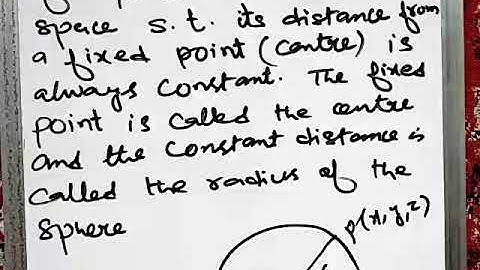 space s.t. its distance from
a fixed point (centre) is
always constant. The fixed
point is called the centre
and the constant distance is
called the radius of the
sphere
P(x, y, z)